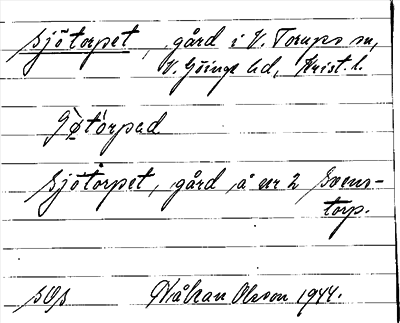 Sjötorpet, gård i V. Torups sn,
V. Göinge hd, Krist. l.
Sjötorpet, gård, å nr 2 Svens-
torp.
Håkan Olsson 1944.